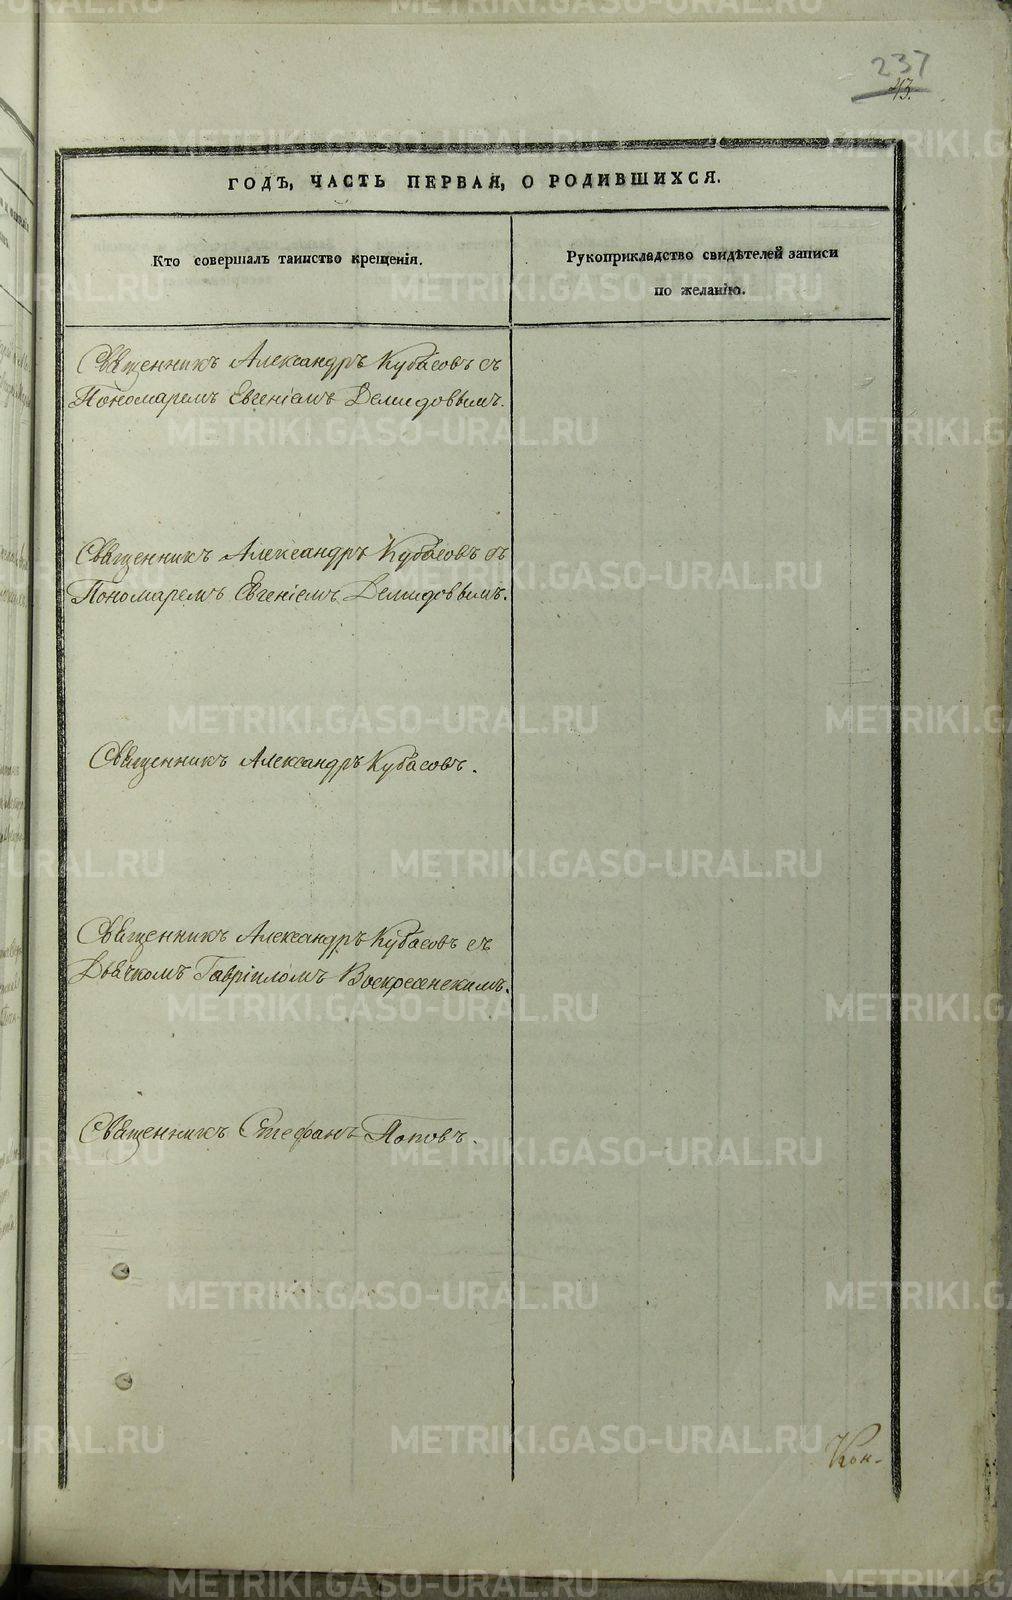 237
43.
ГОДЪ, ЧАСТЬ ПЕРВАЯ, О РОДИВШИХСЯ.
Кто совершалъ таинство крещенія.
Рукоприкладство свидѣтелей записи
по желанію.
Священникъ Александръ Кубасовъ съ
Пономаремъ Евгеніемъ Демидовымъ.
Священникъ Александръ Кубасовъ съ
Пономаремъ Евгеніемъ Демидовымъ.
Священникъ Александръ Кубасовъ.
Священникъ Александръ Кубасовъ съ
Дьячкомъ Гавріиломъ Воскресенскимъ.
Священникъ Стефанъ Поповъ.
Кон-
METRIKI.GASO-URAL.RU